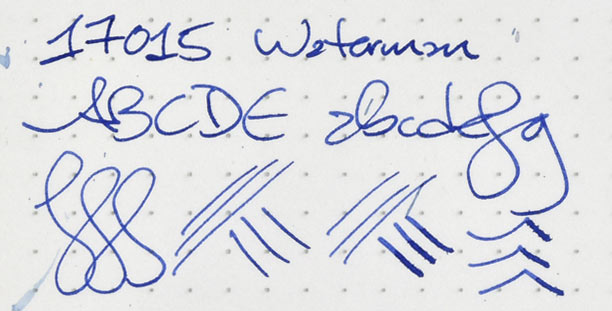 17015 Waterman
ABCDE abcdefg